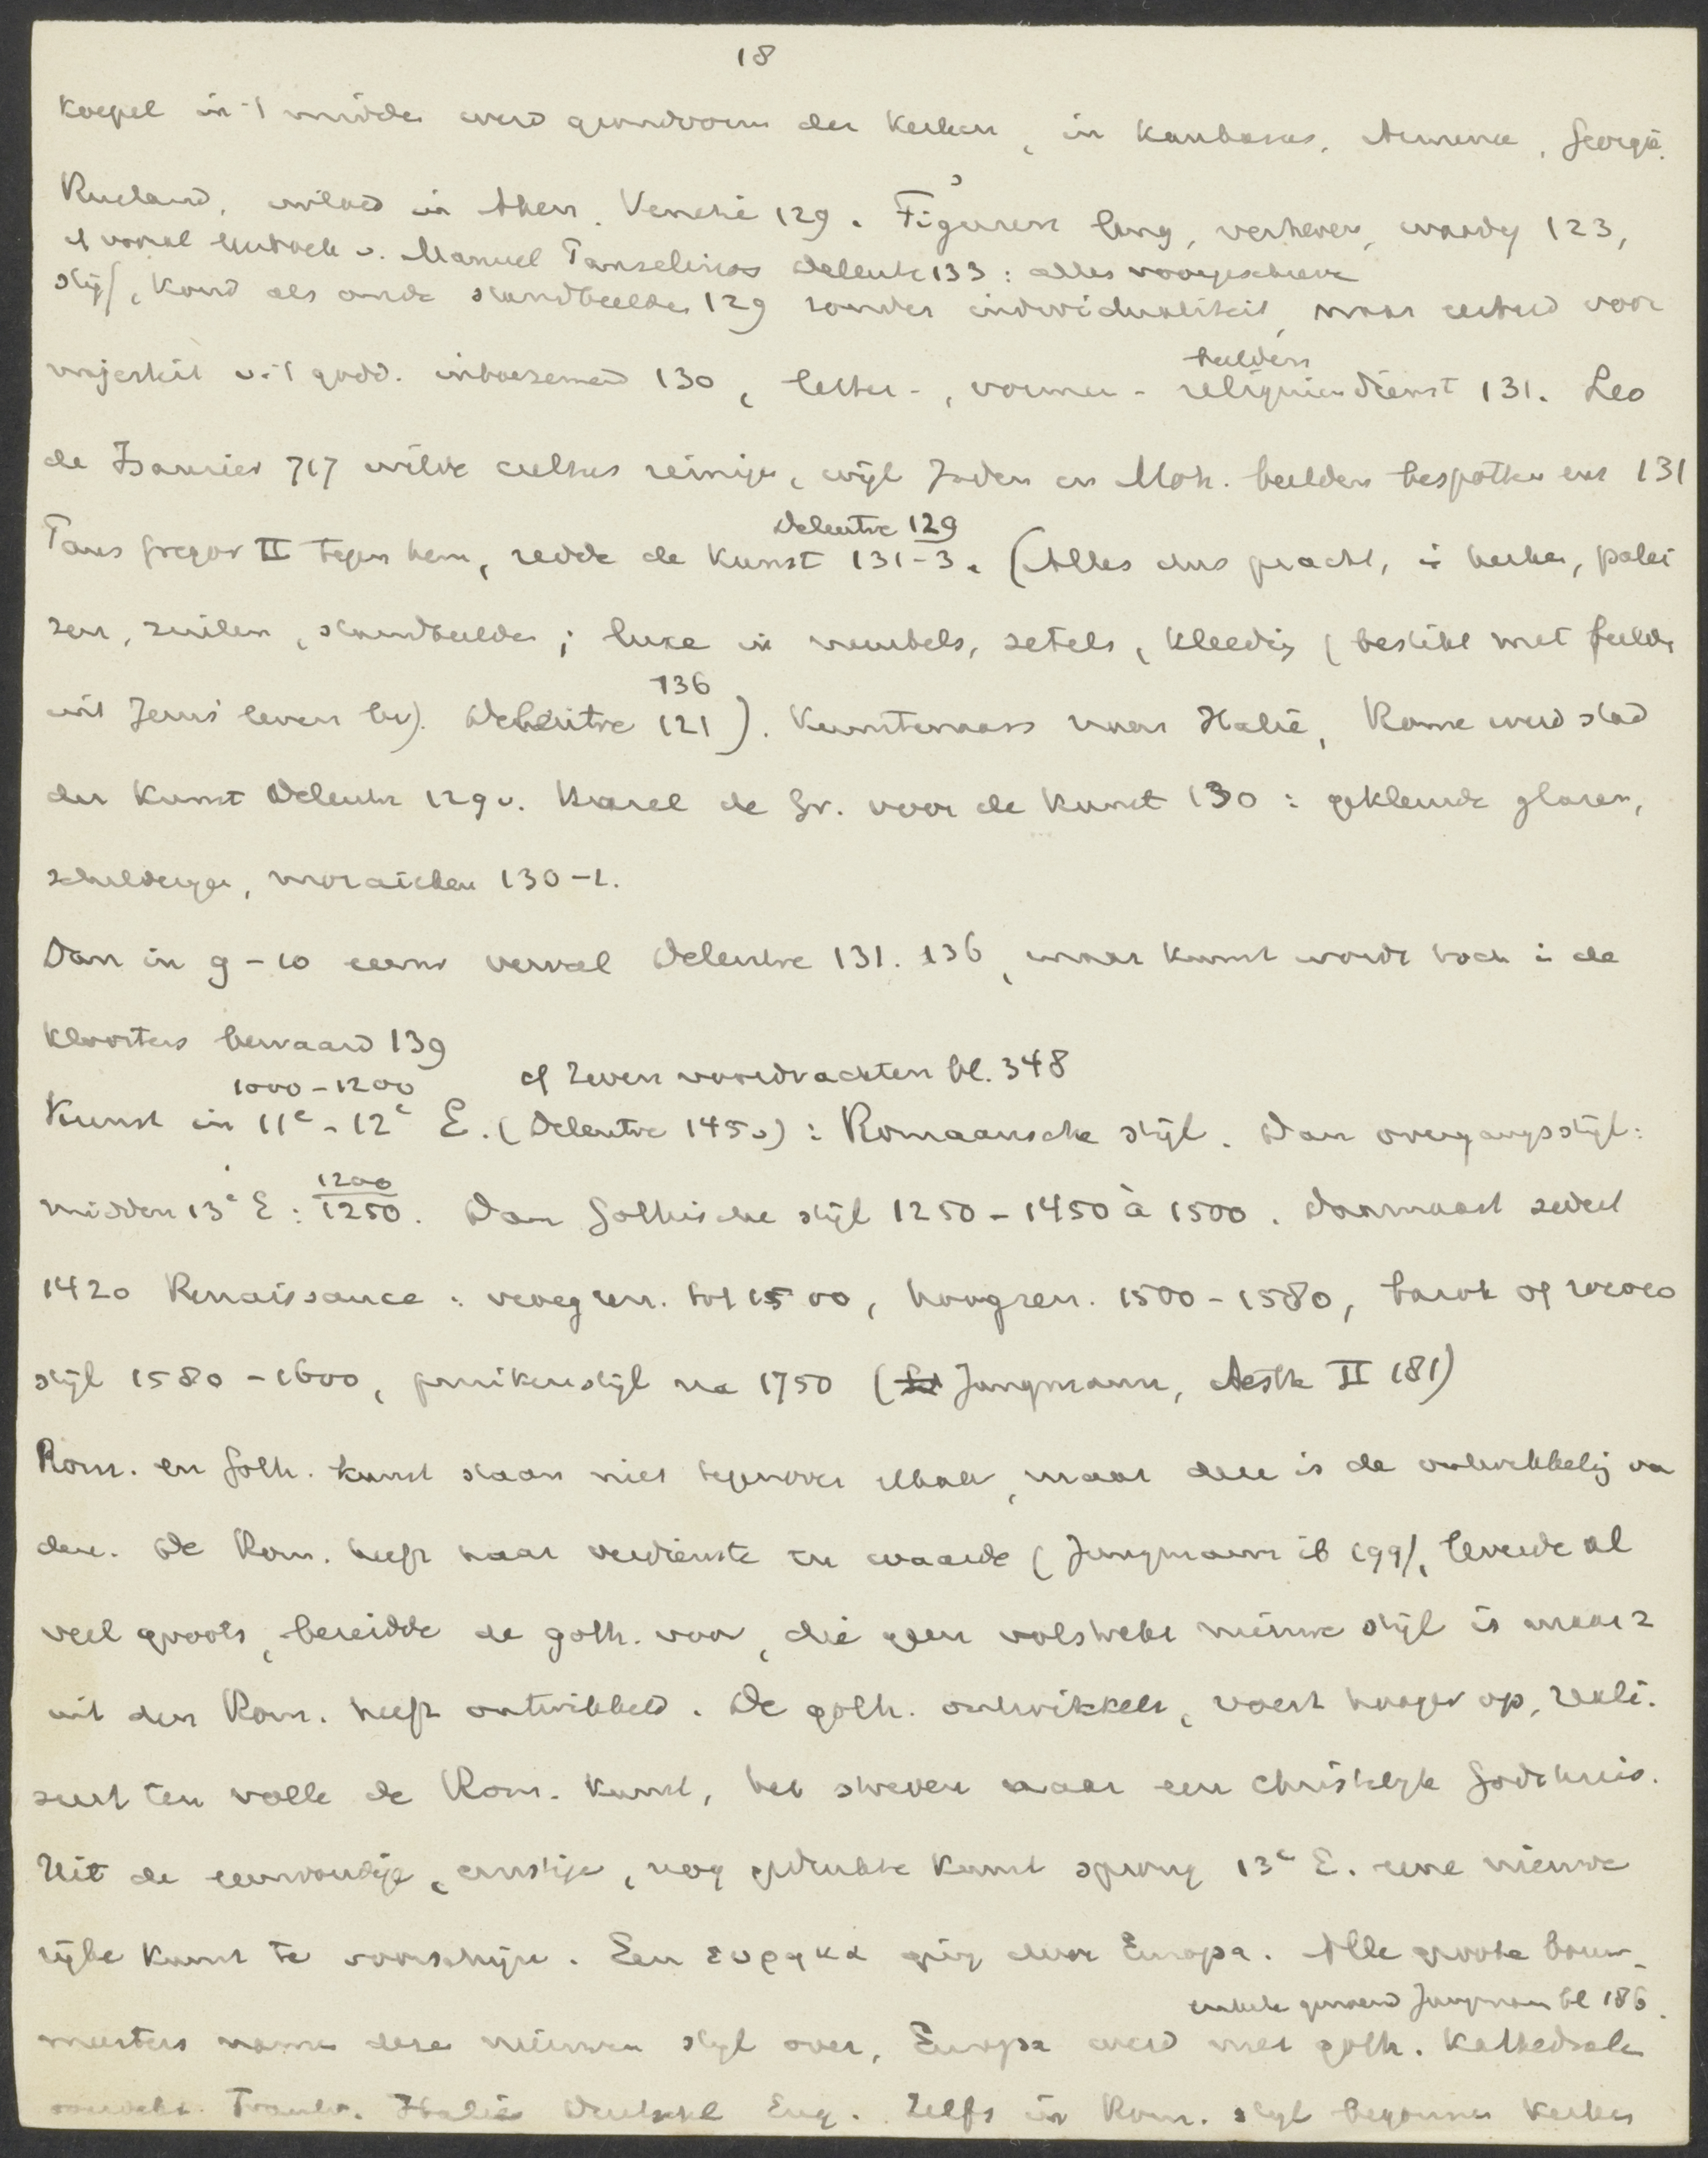 18
Koepel in 't midden werd grondvorm der Kerken, in Kaukasus, Armenie, Georgië,
Rusland, invloed in Athene. Venetië 129. Figuren lang, verheven, waardig 123,
cf vooral Manuel Panselinos Deleutre 133: alles voorgeschreven
stijf, koud als oude standbeelden 129 zonder individualiteit, maar eerbied voor
beelden
majesteit v. 't godd. inboezemend 130, letter-, vormen- reliquiendienst 131. Leo
de Isaurier 717 wilde cultus reinigen, wijl Joden en Moh. beelden bespotten enz 131
Deleutre 129
Paus Gregor II tegen hem, redde de Kunst 131-3. (Alles dus pracht, in kerken, palei
zen, zuilen, standbeelden; luxe in meubels, zetels, kleeding (bestikt met beelden
136
uit Jezus' leven bv). Deleutre 121). Kunstenaars naar Italië, Rome werd stad
der Kunst Deleutre 129v. Karel de Gr. voor de Kunst 130: gekleurde glazen,
schilderijen, mozaieken 130-1.
Dan in 9-10 eeuw verval Deleutre 131. 136, maar kunst wordt toch in de
Kloosters bewaard 139
1000-1200 cf Zeven voordrachten bl. 348
Kunst in 11e-12e E. (Deleutre 145v): Romaansche stijl. Dan overgangsstijl:
1200
midden 13e E: 1250. Dan Gothische stijl 1250-1450 à 1500. Daarnaast sedert
1420 Renaissance: vroegren. tot 1500, hoogren. 1500-1580, barok of rococo
stijl 1580-1600, pruikenstijl na 1750 (Jungmann, Aesth II 181)
Rom. en Goth. kunst staan niet tegenover elkaar, maar deze is de ontwikkeling van
dere. De Rom. heeft haar verdienste en waarde (Jungmann ib 199), leverde al
veel groots, bereidde de goth. voor, die geen volstrekt nieuwe stijl is maar z
uit den Rom. heeft ontwikkeld. De goth. ontwikkelt, voert hooger op, reali-
seert ten volle de Rom. kunst, het streven naar een christelijk Godshuis.
Uit de eenvoudige, ernstige, nog gedrukte Kunst sprong 13e E. eene nieuwe
rijke Kunst te voorschijn. Een ευρηκα ging door Europa. Alle groote bouw-
enkele genoemd Jungmann bl 186.
meesters namen deze nieuwen stijl over, Europa werd met goth. Kathedralen
Frankr. Italië Duitschl Eng. Zelfs in Rom. stijl begonnen Kerken